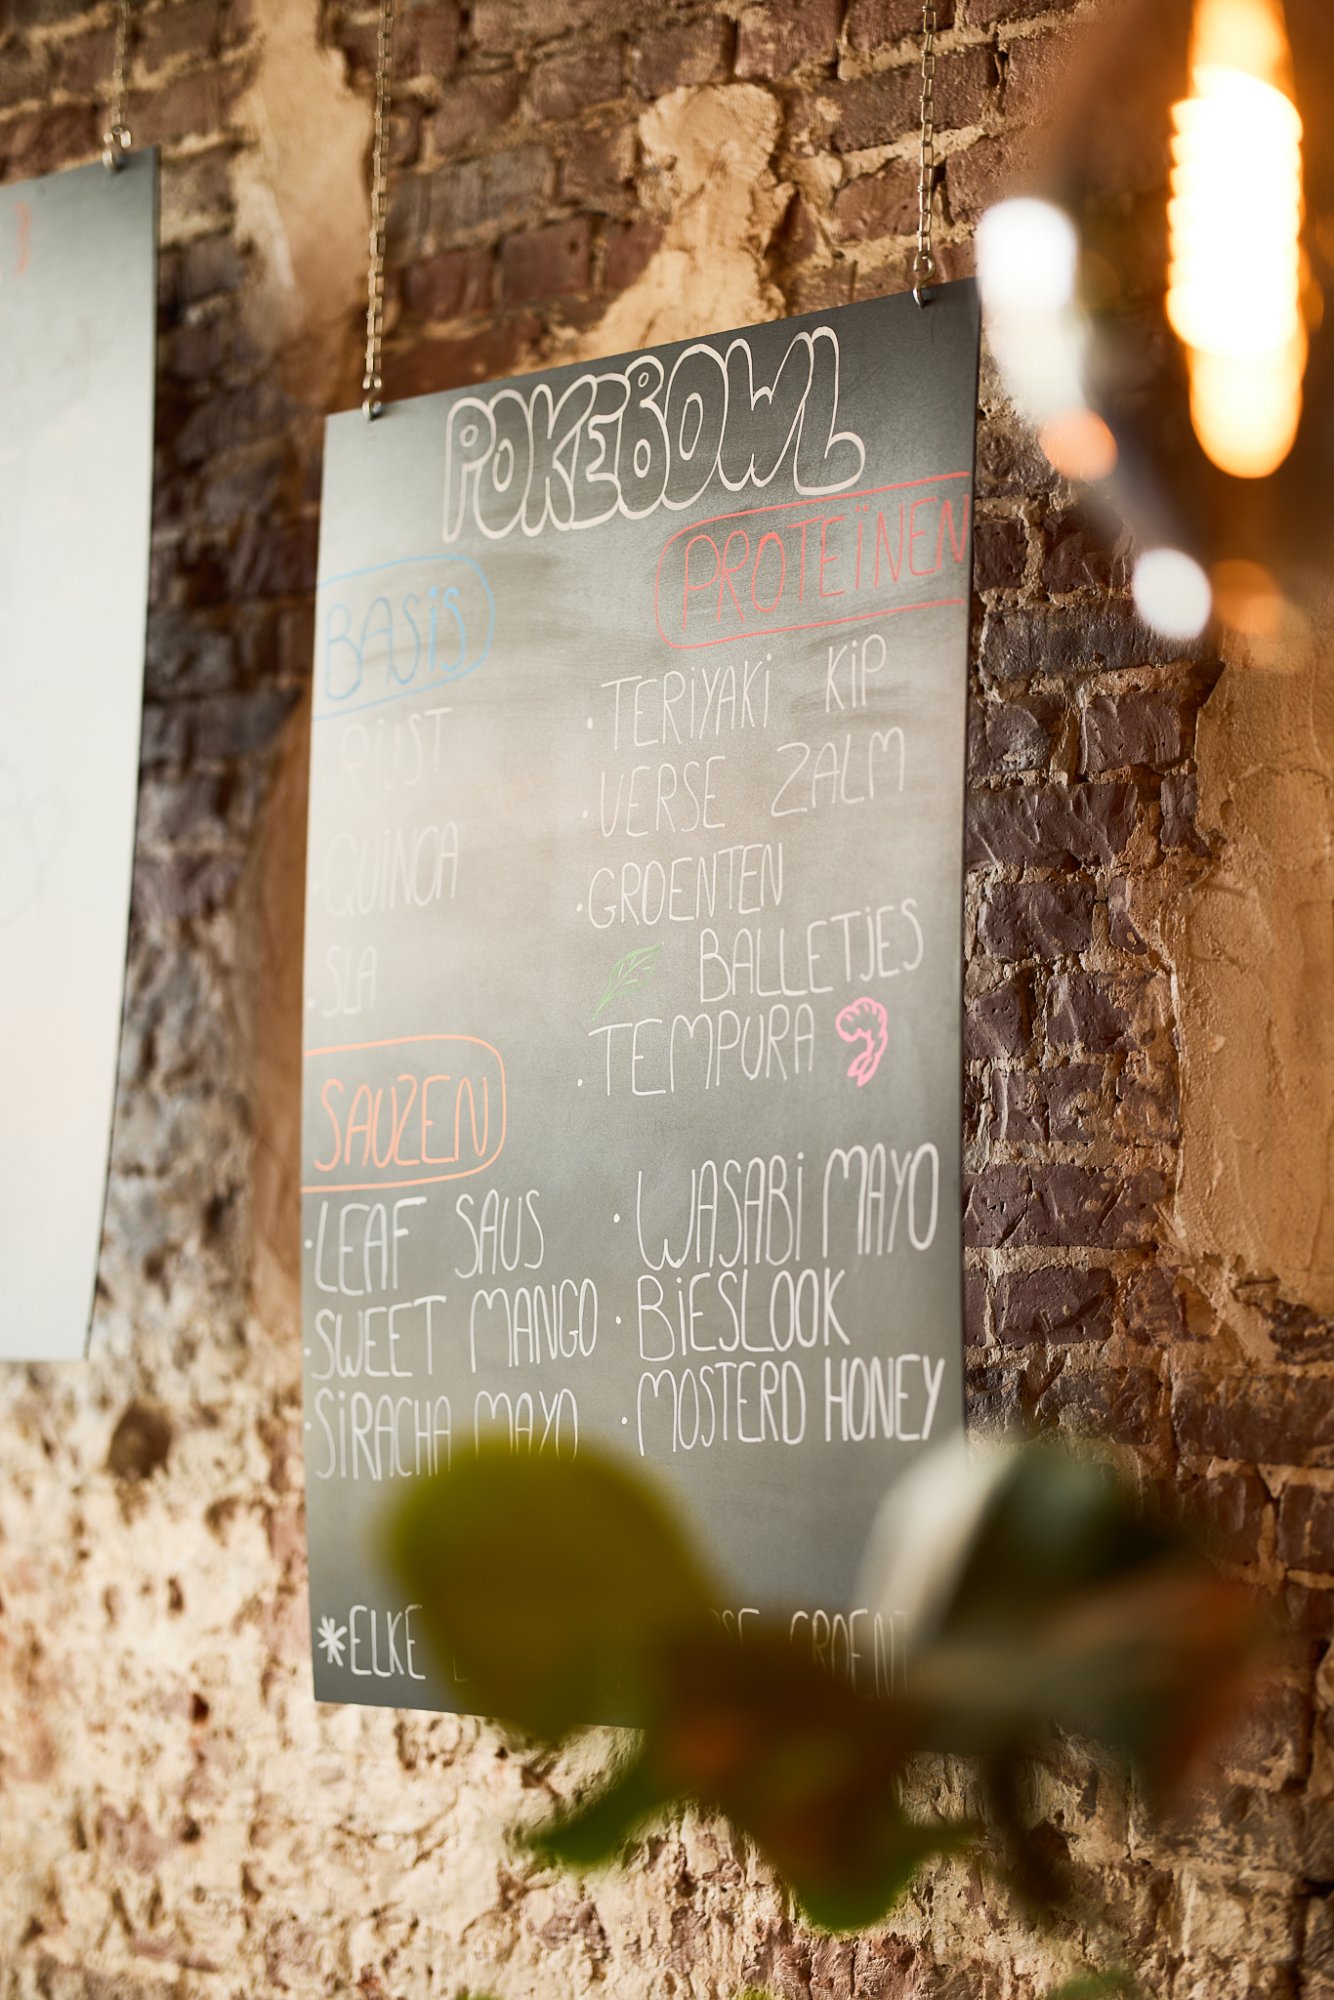 POKEBOWL
BASiS
RIJST
· QUiNOA
· SLA
PROTEÏNEN
· TERiYAKi KiP
· VERSE ZALM
· GROENTEN
BALLETJES
· TEMPURA
SAUZEN
· LEAF SAUS
· SWEET MANGO
· SiRACHA MAYO
· WASABi MAYO
· BiESLOOK
· MOSTERD HONEY
*ELKE